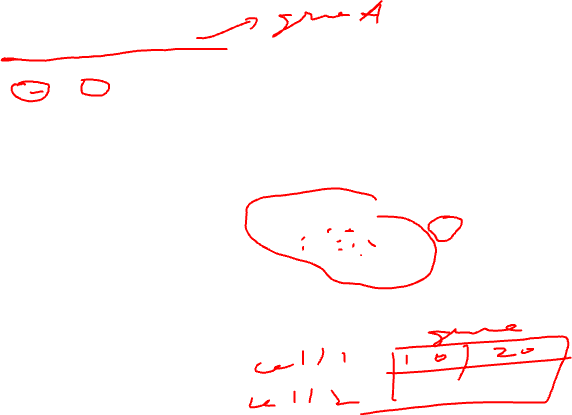 gene A
gene
cell 1 10 20
cell 2